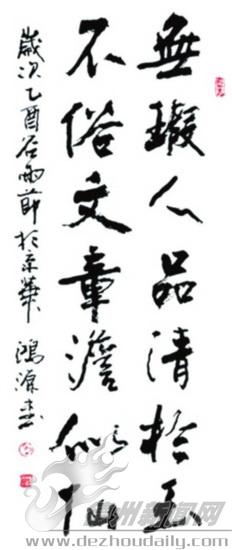 無瑕人品清於玉
不俗文章澹似仙
歲次乙酉谷雨節於京華 鴻源書
德州新闻网
www.dezhoudaily.com